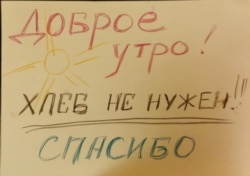 ДОБРОЕ
УТРО!
ХЛЕБ НЕ НУЖЕН!!!
СПАСИБО